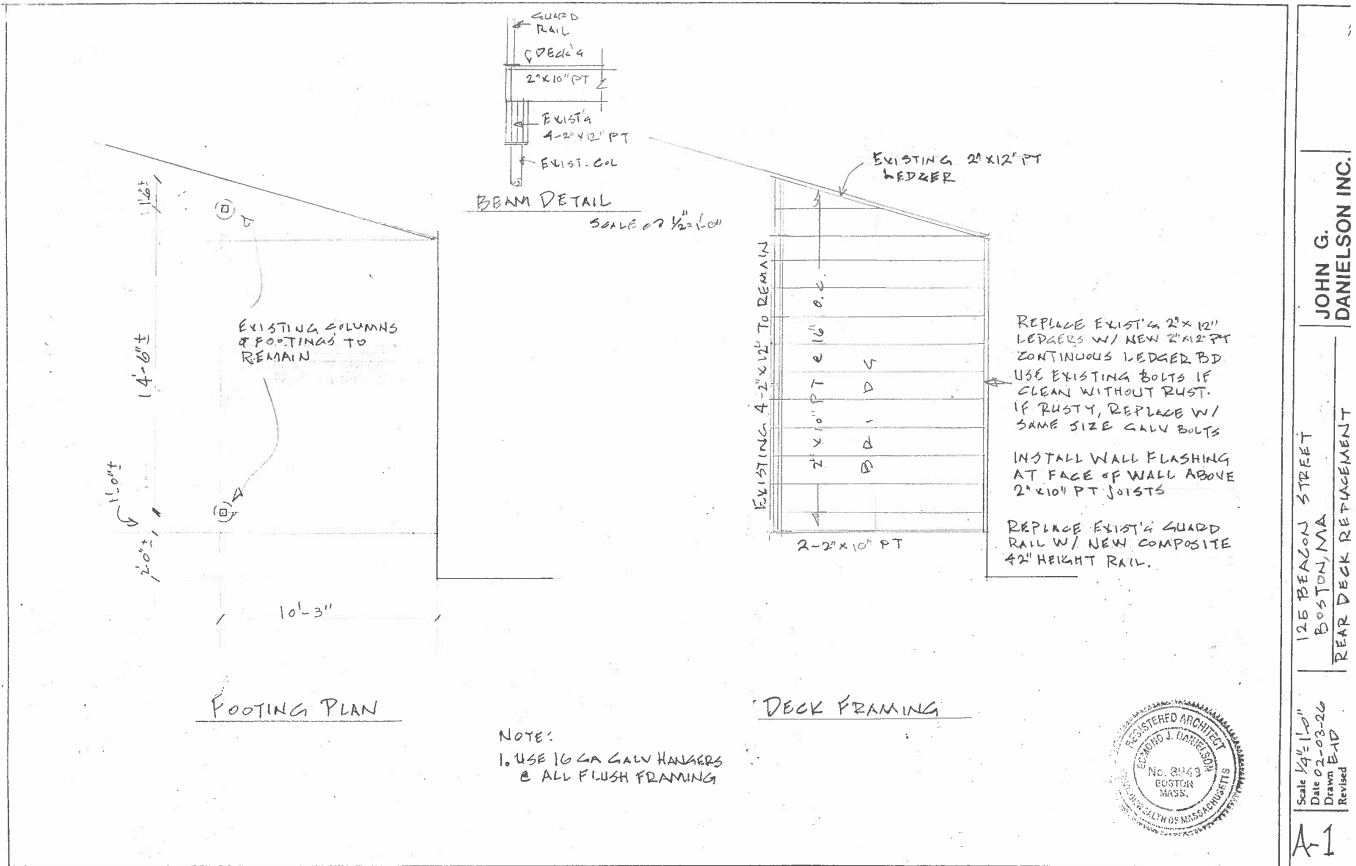 GUARD
RAIL
DECK'G
2"X10" PT
EXIST'G
4-2"X12" PT
EXIST. COL
BEAM DETAIL
SCALE OF 1/2"=1'-0"
1'6"±
14'-6"±
1'-0"±
2'0"±
10'-3"
EXISTING COLUMNS
& FOOTINGS TO
REMAIN
FOOTING PLAN
EXISTING 2"X12" PT
LEDGER
EXISTING 4-2"X12" TO REMAIN
2"X10" PT @ 16" O.C.
2-2"X10" PT
REPLACE EXIST'G 2"X12"
LEDGERS W/ NEW 2"X12" PT
CONTINUOUS LEDGER BD
USE EXISTING BOLTS IF
CLEAN WITHOUT RUST.
IF RUSTY, REPLACE W/
SAME SIZE GALV BOLTS
INSTALL WALL FLASHING
AT FACE OF WALL ABOVE
2"X10" PT JOISTS
REPLACE EXIST'G GUARD
RAIL W/ NEW COMPOSITE
42" HEIGHT RAIL.
DECK FRAMING
NOTE:
1. USE 16 GA GALV HANGERS
@ ALL FLUSH FRAMING
REGISTERED ARCHITECT
EDMOND J. DANIELSON
No. 8943
BOSTON
MASS.
COMMONWEALTH OF MASSACHUSETTS
JOHN G.
DANIELSON INC.
125 BEACON STREET
BOSTON, MA
REAR DECK REPLACEMENT
Scale 1/4"=1'-0"
Date 02-03-26
Drawn EJD
Revised
A-1